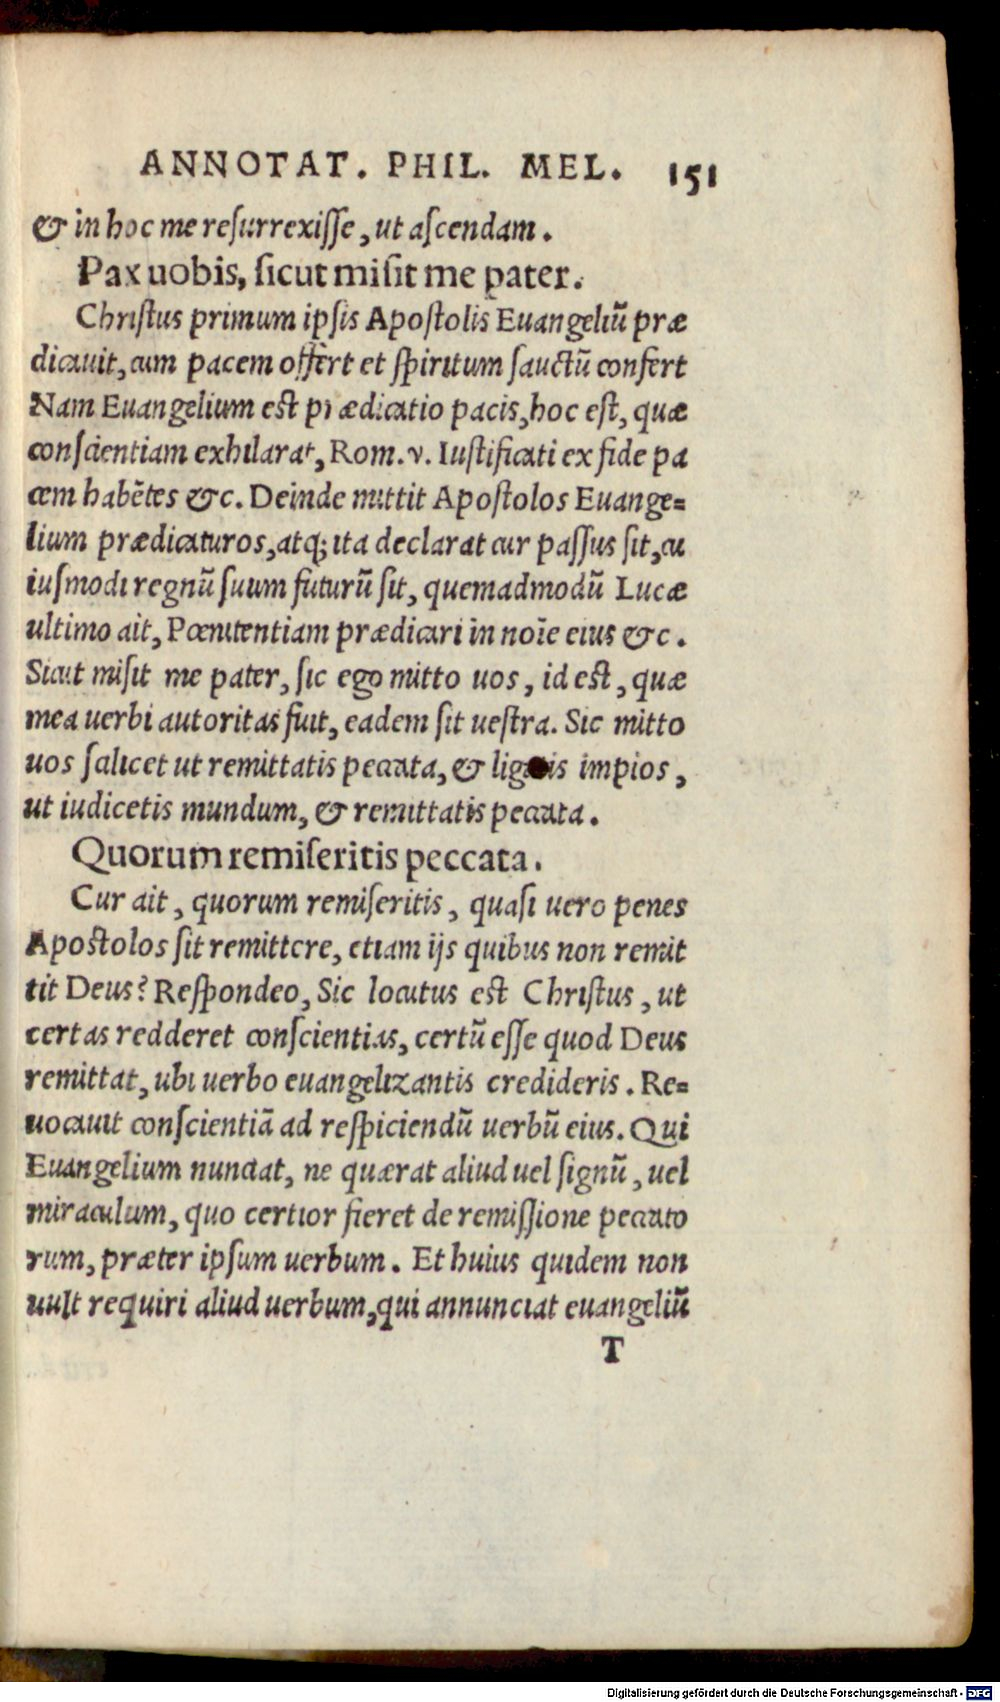 ANNOTAT. PHIL. MEL. 151
& in hoc me resurrexisse, ut ascendam.
Pax uobis, sicut misit me pater.
Christus primum ipsis Apostolis Euangeliū præ
dicauit, cum pacem offert et spiritum sauctū confert
Nam Euangelium est prædicatio pacis, hoc est, quæ
conscientiam exhilarat, Rom. v. Iustificati ex fide pa
cem habētes &c. Deinde mittit Apostolos Euange=
lium prædicaturos, atq; ita declarat cur passus sit, cu
iusmodi regnū suum futurū sit, quemadmodū Lucæ
ultimo ait, Pœnitentiam prædicari in noīe eius &c.
Sicut misit me pater, sic ego mitto uos, id est, quæ
mea uerbi autoritas fuit, eadem sit uestra. Sic mitto
uos salicet ut remittatis peccata, & ligetis impios,
ut iudicetis mundum, & remittatis peccata.
Quorum remiseritis peccata.
Cur ait, quorum remiseritis, quasi uero penes
Apostolos sit remittere, etiam ijs quibus non remit
tit Deus? Respondeo, Sic locutus est Christus, ut
certas redderet conscientias, certū esse quod Deus
remittat, ubi uerbo euangelizantis credideris. Re=
uocauit conscientiā ad respiciendū uerbū eius. Qui
Euangelium nunciat, ne quærat aliud uel signū, uel
miraculum, quo certior fieret de remissione peccato
rum, præter ipsum uerbum. Et huius quidem non
uult requiri aliud uerbum, qui annunciat euangeliū
T
Digitalisierung gefördert durch die Deutsche Forschungsgemeinschaft - DFG